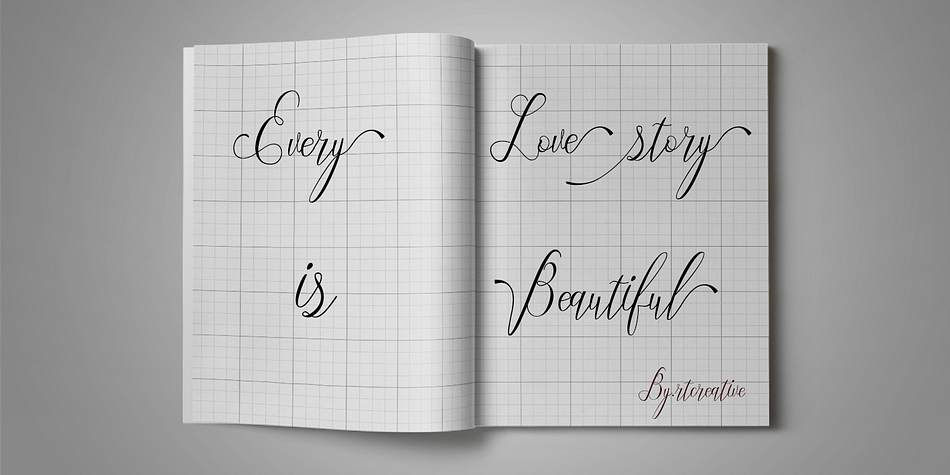 Every Love story
is Beautiful
By.rtcreative